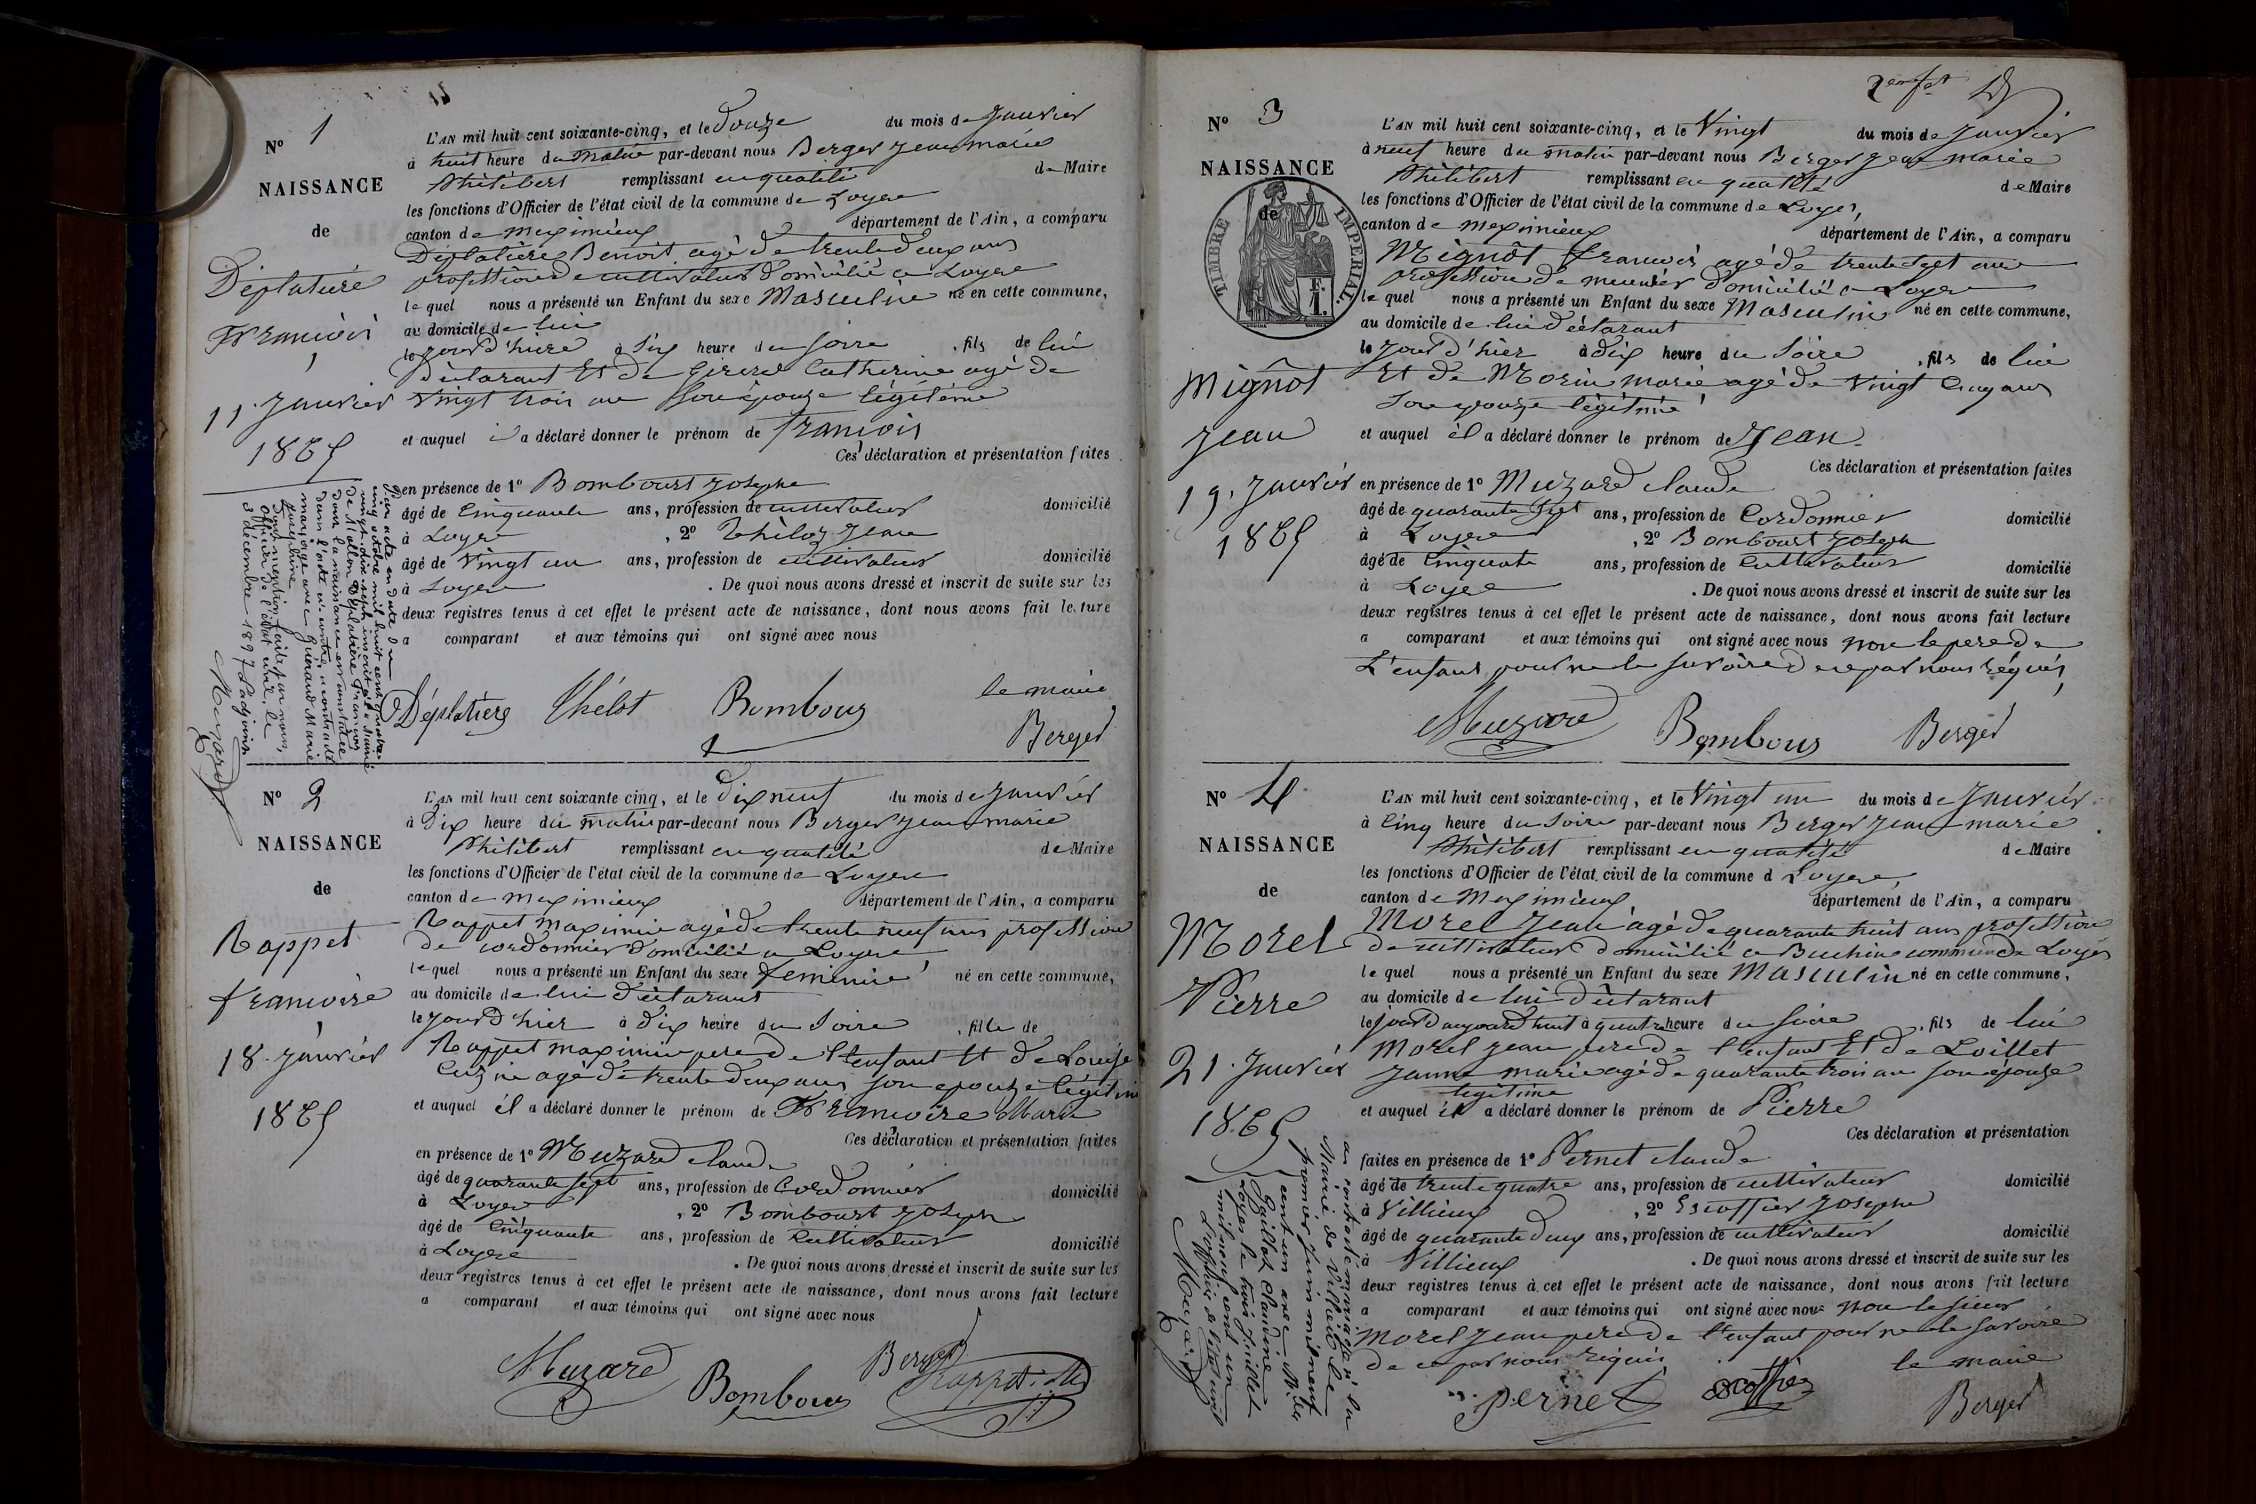 N° 1
NAISSANCE
de
Déplatière
François
11. Janvier
1865
L'AN mil huit cent soixante-cinq, et le Douze du mois de Janvier
à huit heure du matin par-devant nous Berger Jean marie
Philibert remplissant en qualité de Maire
les fonctions d'Officier de l'état civil de la commune de Loyes
canton de meximieux département de l'Ain, a comparu
Déplatière Benoit agé de trente deux ans
profession de cultivateur domicilié a Loyes
lequel nous a présenté un Enfant du sexe Masculin né en cette commune,
au domicile de lui
le jour d'hiere à Six heure du soire , fils de lui
Déclarant Et de Girard Catherine agé de
Vingt trois ans Son épouze légitime
et auquel il a déclaré donner le prénom de François
Ces déclaration et présentation faites
en présence de 1° Bomboust Joseph
âgé de Cinquante ans, profession de cultivateur domicilié
à Loyes , 2° Thélot Jean
âgé de Vingt un ans, profession de cultivateur domicilié
à Loyes . De quoi nous avons dressé et inscrit de suite sur les
deux registres tenus à cet effet le présent acte de naissance, dont nous avons fait lecture
a comparant et aux témoins qui ont signé avec nous
Par acte en date du
cinq octobre mil huit cent quatre
vingt-dix-sept inscrit à la Mairie
de Déplatière François
dont la naissance est constatée
dans l'acte ci-contre a contracté
mariage avec Guerand Marie
Dont mention faite par nous,
Officier de l'état civil, le
3 décembre 1897 L'adjoint
Muzard
Déplatière Thélot Bombous le maire
Berger
N° 2
NAISSANCE
de
Rappet
françoise
18. Janvier
1865
L'AN mil huit cent soixante cinq, et le Dix neuf du mois de Janvier
à Dix heure du matin par-devant nous Berger Jean marie
Philibert remplissant en qualité de Maire
les fonctions d'Officier de l'état civil de la commune de Loyes
canton de meximieux département de l'Ain, a comparu
Rappet maximin agé de trente neuf ans profession
de cordonnier domicilié a Loyes
lequel nous a présenté un Enfant du sexe feminin né en cette commune,
au domicile de lui déclarant
le jour d'hier à dix heure du Soire , fille de
Rappet maximin pere de l'enfant Et de Louise
agé de trente deux ans son epouze légitime
et auquel il a déclaré donner le prénom de Françoise Marie
Ces déclaration et présentation faites
en présence de 1° Muzard claude
âgé de quarante sept ans, profession de Cordonnier domicilié
à Loyes , 2° Bomboust Joseph
âgé de Cinquante ans, profession de Cultivateur domicilié
à Loyes . De quoi nous avons dressé et inscrit de suite sur les
deux registres tenus à cet effet le présent acte de naissance, dont nous avons fait lecture
a comparant et aux témoins qui ont signé avec nous
Muzard Bombous Berger Rappet
N° 3
NAISSANCE
de
TIMBRE IMPERIAL
1 F.
Mignôt
Jean
19. Janvier
1865
L'AN mil huit cent soixante-cinq, et le Vingt du mois de Janvier
à neuf heure du matin par-devant nous Berger Jean marie
Philibert remplissant en qualité de Maire
les fonctions d'Officier de l'état civil de la commune de Loyes,
canton de meximieux département de l'Ain, a comparu
Mignôt François agé de trente sept ans
profession de meunier domicilié a Loyes
lequel nous a présenté un Enfant du sexe Masculin né en cette commune,
au domicile de lui déclarant
le Jour d'hier à dix heure du Soire , fils de lui
Et de Morin marie agé de Vingt Cinq ans
Son epouze légitime
et auquel il a déclaré donner le prénom de Jean
Ces déclaration et présentation faites
en présence de 1° Muzard claude
âgé de quarante sept ans, profession de Cordonnier domicilié
à Loyes , 2° Bomboust Joseph
âgé de Cinquante ans, profession de Cultivateur domicilié
à Loyes . De quoi nous avons dressé et inscrit de suite sur les
deux registres tenus à cet effet le présent acte de naissance, dont nous avons fait lecture
a comparant et aux témoins qui ont signé avec nous non le pere de
L'enfant pour ne le savoire de ce par nous réquis,
Muzard Bombous Berger
N° 4
NAISSANCE
de
Morel
Pierre
21. Janvier
1865
L'AN mil huit cent soixante-cinq, et le Vingt un du mois de Janvier
à Cinq heure du Soire par-devant nous Berger Jean marie
Philibert remplissant en qualité de Maire
les fonctions d'Officier de l'état civil de la commune d Loyes
canton de Meximieux département de l'Ain, a comparu
Morel Jean agé de quarante huit ans profession
de cultivateur domicilié a commune de Loyes
lequel nous a présenté un Enfant du sexe Masculin né en cette commune,
au domicile de lui Déclarant
le jour d'aujourd'huit à quatre heure du Soire , fils de lui
Morel Jean pere de l'enfant Et de Loillet
Janne marie agé de quarante trois ans son épouze
légitime
et auquel il a déclaré donner le prénom de Pierre
Ces déclaration et présentation
faites en présence de 1° Pernet claude
âgé de trente quatre ans, profession de cultivateur domicilié
à Villieux , 2° Escoffier Joseph
âgé de quarante deux ans, profession de cultivateur domicilié
à Villieux . De quoi nous avons dressé et inscrit de suite sur les
deux registres tenus à cet effet le présent acte de naissance, dont nous avons fait lecture
a comparant et aux témoins qui ont signé avec nous non le sieur
Morel Jean pere de l'enfant pour ne le savoire
de ce par nous réquis
a contracté mariage à la
Mairie de Villieux le
premier juin mil neuf
cent un avec M.lle
Gaillot Claudine
Loyes le trois juillet
mil neuf cent un
L'officier de l'état civil
Muzard
Pernet Escoffier le maire
Berger